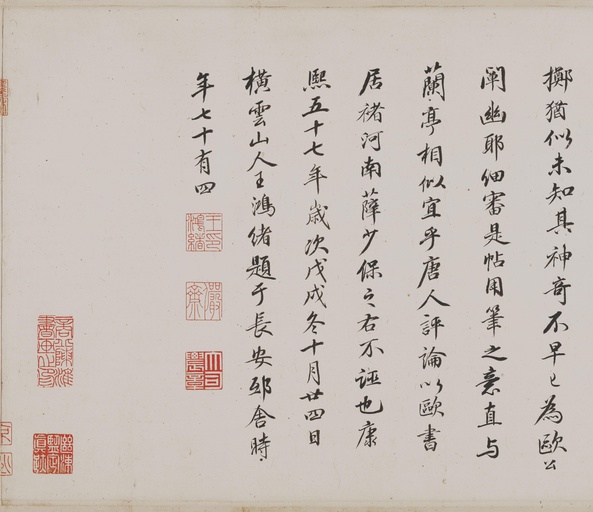 擲猶似未知其神奇不早已為歐公
闡幽耶細審是帖用筆之意直与
蘭亭相似宜乎唐人評論以歐書
居褚河南薛少保之右不誣也康
熙五十七年歲次戊戌冬十月廿四日
橫雲山人王鴻緒題于長安邸舍時
年七十有四
王鴻緒印